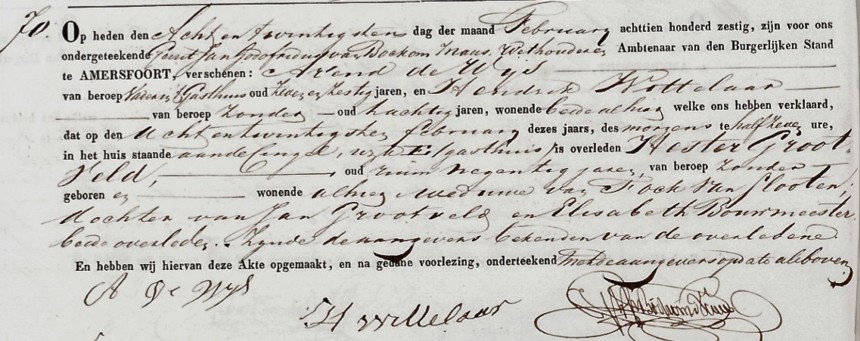 70. Op heden den Acht en twintigsten dag der maand February achttien honderd zestig, zijn voor ons
ondergeteekende Gerrit Jan Godfriedus van Boekom Maas, Wethouder, Ambtenaar van den Burgerlijken Stand
te AMERSFOORT, verschenen: Arend de Wijs
van beroep Vader in 't Gasthuis oud zeven en zestig jaren, en Hendrik Wottelaar
van beroep Zonder oud tachtig jaren, wonende beide alhier welke ons hebben verklaard,
dat op den Acht en twintigsten february dezes jaars, des morgens te half zeven ure,
in het huis staande aan de Cingel, Gasthuis is overleden Hester Groot-
veld, oud ruim negentig jaren, van beroep zonder
geboren en wonende alhier weduwe van Slooten,
dochter van Jan Grootveld en Elisabeth Bouwmeester
beide overleden. Zynde de aangevers bekenden van de overledene
En hebben wij hiervan deze Akte opgemaakt, en na gedane voorlezing, onderteekend met de aangevers op dato alsboven
A De Wijs
H Wttelaar